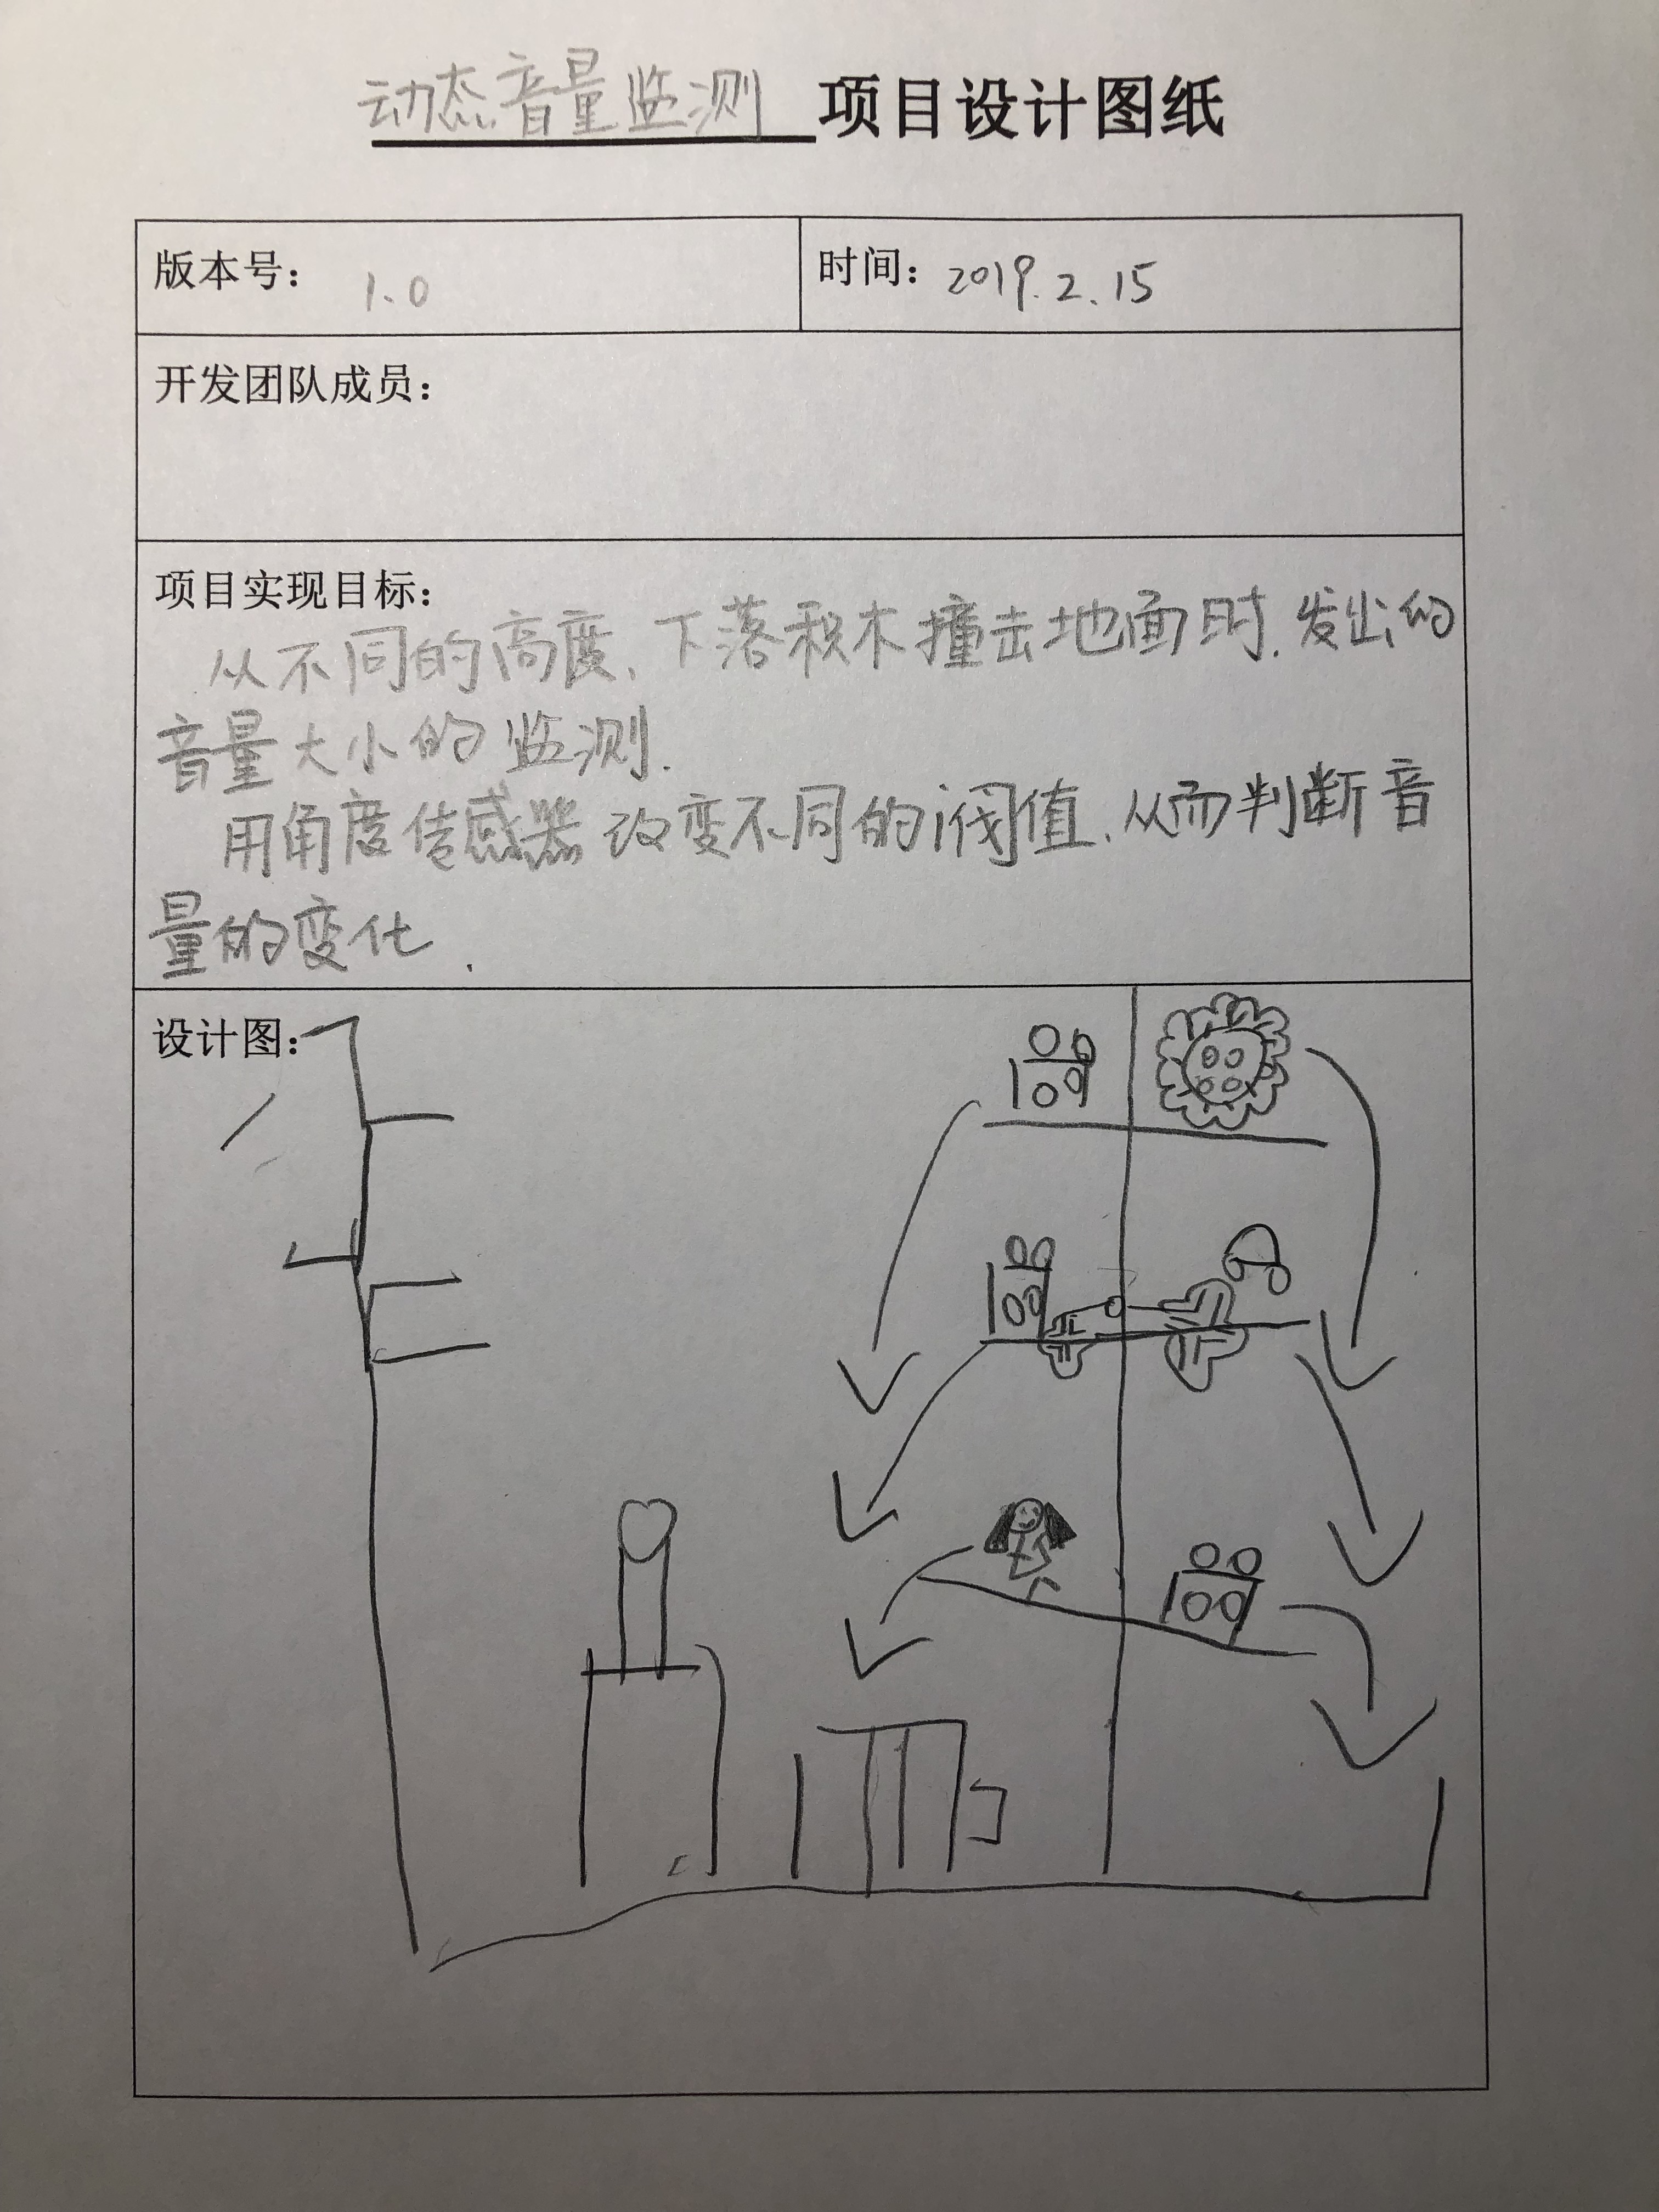 动态音量监测 项目设计图纸
版本号： 1.0 时间：2019.2.15
开发团队成员：
项目实现目标：
从不同的高度、下落积木撞击地面时.发出的
音量大小的监测.
用角度传感器改变不同的阀值.从而判断音
量的变化.
设计图：